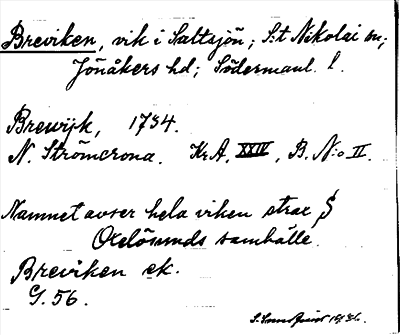 Breviken, vik i Saltsjön; S:t Nikolai sn;
Jönåkers hd; Södermanl. l.
Brewijk, 1734.
N. Strömcrona. Kr.A. XXIV, B. N:o II.
Namnet avser hela viken strax S
Oxelösunds samhälle.
Breviken ek.
G. 56.